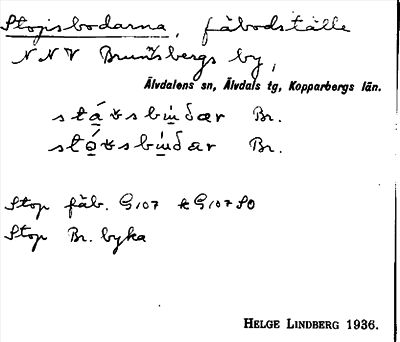 Stopisbodarna, fäbodställe
NNV Brunnsbergs by,
Älvdalens sn, Älvdals tg, Kopparbergs län.
Br.
Br.
Stop fäb. G107 k G107 SO
Stop Br. byka
HELGE LINDBERG 1936.